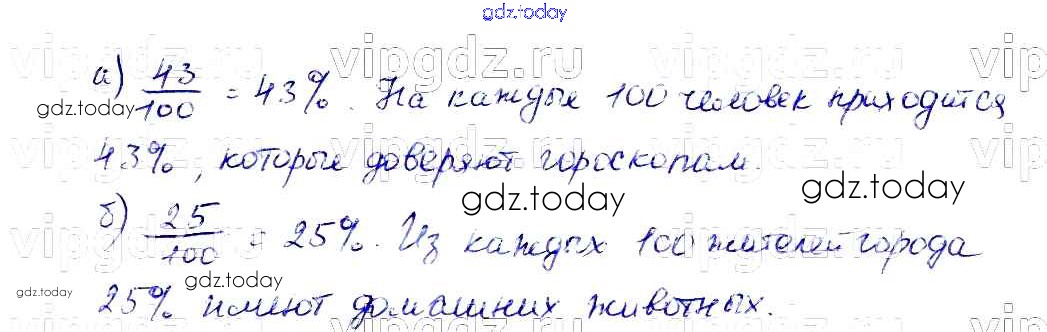 gdz.today
vipgdz.ru vipgdz.ru vipgdz.ru vip
а) 43/100 = 43%. На каждые 100 человек приходится
gdz.today gdz.today
43%, которые доверяют гороскопам.
gdz.today gdz.today
б) 25/100 = 25%. Из каждых 100 жителей города
gdz.today gdz.today
25% имеют домашних животных.